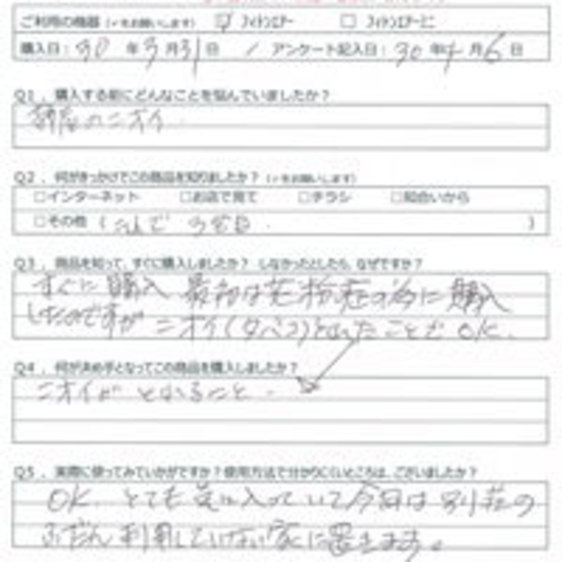 ご利用の機器（✓をお願いします） ☑ フィトンエアー □ フィトンエアーミニ
購入日：30 年 3 月 31 日 / アンケート記入日：30 年 4 月 6 日
Q1．購入する前にどんなことを悩んでいましたか？
部屋のニオイ
Q2．何がきっかけでこの商品を知りましたか？（✓をお願いします）
□インターネット □お店で見て □チラシ □知合いから
□その他（これで 3台目． ）
Q3．商品を知って、すぐに購入しましたか？ しなかったとしたら、なぜですか？
すぐに購入 最初は花粉症の為に購入
したのですが ニオイ（タバコ）もとれたことでOK．
Q4．何が決め手となってこの商品を購入しましたか？
ニオイが とれること．
Q5．実際に使ってみていかがですか？使用方法で分かりにくいところは、ございましたか？
OK．とても気に入っていて今回は別荘の
ふだん利用していない家に置きます。